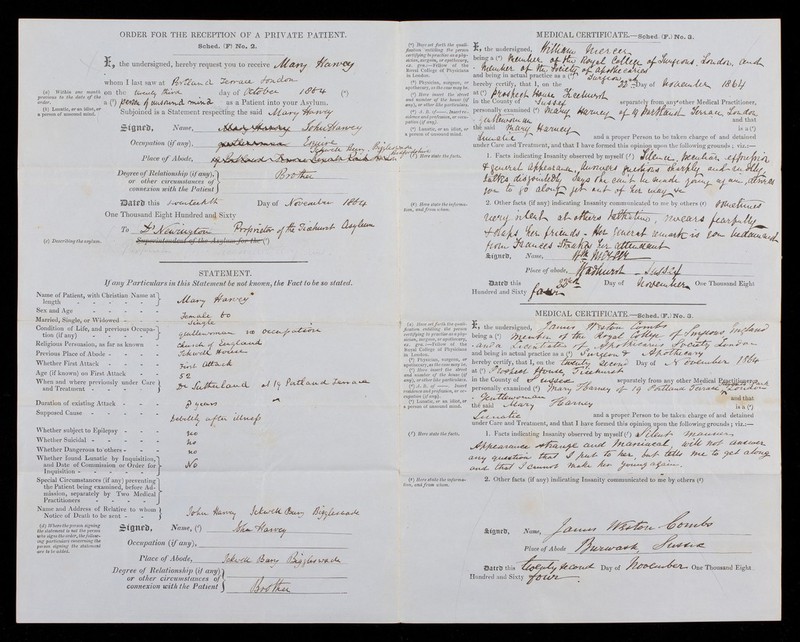 ORDER FOR THE RECEPTION OF A PRIVATE PATIENT.
Sched. (F) No. 2.
I, the undersigned, hereby request you to receive Mary Harvey
whom I last saw at Portland Terrace London
(a) Within one month previous to the date of the order.
on the twenty third day of October 1864 (a)
(b) Lunatic, or an idiot, or a person of unsound mind.
a (b) person of unsound mind as a Patient into your Asylum.
Subjoined is a Statement respecting the said Mary Harvey
Signed, Name, John Harvey
Occupation (if any), Esquire
Place of Abode, Ickwell Bury, Biggleswade
Degree of Relationship (if any), or other circumstances of connexion with the Patient } Brother
Dated this twentieth Day of November 1864
One Thousand Eight Hundred and Sixty
To Dr Newington Proprietor of the Ticehurst Asylum
(c) Describing the asylum.
Superintendent of the Asylum for the (c)
STATEMENT.
If any Particulars in this Statement be not known, the Fact to be so stated.
Name of Patient, with Christian Name at length } Mary Harvey
Sex and Age Female 60
Married, Single, or Widowed Single
Condition of Life, and previous Occupation (if any) } gentlewoman no occupation
Religious Persuasion, as far as known Church of England
Previous Place of Abode Ickwell House
Whether First Attack First Attack
Age (if known) on First Attack 52
When and where previously under Care and Treatment } Dr Sutherland at 19 Portland Terrace
Duration of existing Attack 8 years
Supposed Cause Debility after illness
Whether subject to Epilepsy no
Whether Suicidal no
Whether Dangerous to others no
Whether found Lunatic by Inquisition, and Date of Commission or Order for Inquisition } No
Special Circumstances (if any) preventing the Patient being examined, before Admission, separately by Two Medical Practitioners }
Name and Address of Relative to whom Notice of Death to be sent } John Harvey Ickwell Bury Biggleswade
(d) Where the person signing the statement is not the person who signs the order, the following particulars concerning the person signing the statement are to be added.
Signed, Name, (d) John Harvey
Occupation (if any),
Place of Abode, Ickwell Bury Biggleswade
Degree of Relationship (if any), or other circumstances of connexion with the Patient } Brother
MEDICAL CERTIFICATE.—Sched. (F.) No. 3.
(a) Here set forth the qualification entitling the person certifying to practise as a physician, surgeon, or apothecary, ex. gra.:—Fellow of the Royal College of Physicians in London.
I, the undersigned, William Mercer
being a (a) Member of the Royal College of Surgeons, London, and
Member of the Society of Apothecaries
and being in actual practice as a (b) Surgeon
(b) Physician, surgeon, or apothecary, as the case may be.
hereby certify, that I, on the 22nd Day of November 1864
(c) Here insert the street and number of the house (if any), or other like particulars.
at (c) Prospect House Ticehurst
in the County of Sussex separately from any other Medical Practitioner,
(d) A. B. of —— Insert residence and profession, or occupation (if any).
personally examined (d) Mary Harvey of 19 Portland Terrace London
Gentlewoman and that
(e) Lunatic, or an idiot, or a person of unsound mind.
the said Mary Harvey is a (e)
Lunatic and a proper Person to be taken charge of and detained
under Care and Treatment, and that I have formed this opinion upon the following grounds; viz:—
(f) Here state the facts.
1. Facts indicating Insanity observed by myself (f) Silence, peculiar expression
& general appearance, answers questions sharply and suddenly
talks disjointedly says she can't be made young again, desires
you to go along get out of her way
(g) Here state the information, and from whom.
2. Other facts (if any) indicating Insanity communicated to me by others (g) sometimes
very silent at others talkative, swears fearfully
& slaps her friends - Her general remark is
from Frances her attendant
Signed, Name, Wm Mercer
Place of abode, Wadhurst - Sussex
Dated this 22nd Day of November One Thousand Eight
Hundred and Sixty four
MEDICAL CERTIFICATE.—Sched. (F.) No. 3.
(a) Here set forth the qualification entitling the person certifying to practise as a physician, surgeon, or apothecary, ex. gra.:—Fellow of the Royal College of Physicians in London.
I, the undersigned, James Weston Combs
being a (a) Member of the Royal College of Surgeons, England
and a Licentiate of Apothecaries Society London
(b) Physician, surgeon, or apothecary, as the case may be.
and being in actual practice as a (b) Surgeon & Apothecary
hereby certify, that I, on the twenty second Day of November 1864
(c) Here insert the street and number of the house (if any), or other like particulars.
at (c) Prospect House, Ticehurst
in the County of Sussex separately from any other Medical Practitioner,
(d) A. B. of —— Insert residence and profession, or occupation (if any).
personally examined (d) Mary Harvey of 19 Portland Terrace London
Gentlewoman and that
(e) Lunatic, or an idiot, or a person of unsound mind.
the said Mary Harvey is a (e)
Lunatic and a proper Person to be taken charge of and detained
under Care and Treatment, and that I have formed this opinion upon the following grounds; viz:—
(f) Here state the facts.
1. Facts indicating Insanity observed by myself (f) Silent manner,
Appearance strange and maniacal, will not answer
any question that I put to her, but tells me to get along
and that I cannot make her young again.
(g) Here state the information, and from whom.
2. Other facts (if any) indicating Insanity communicated to me by others (g)
Signed, Name, James Weston Combs
Place of Abode Burwash, Sussex
Dated this twenty second Day of November One Thousand Eight
Hundred and Sixty four